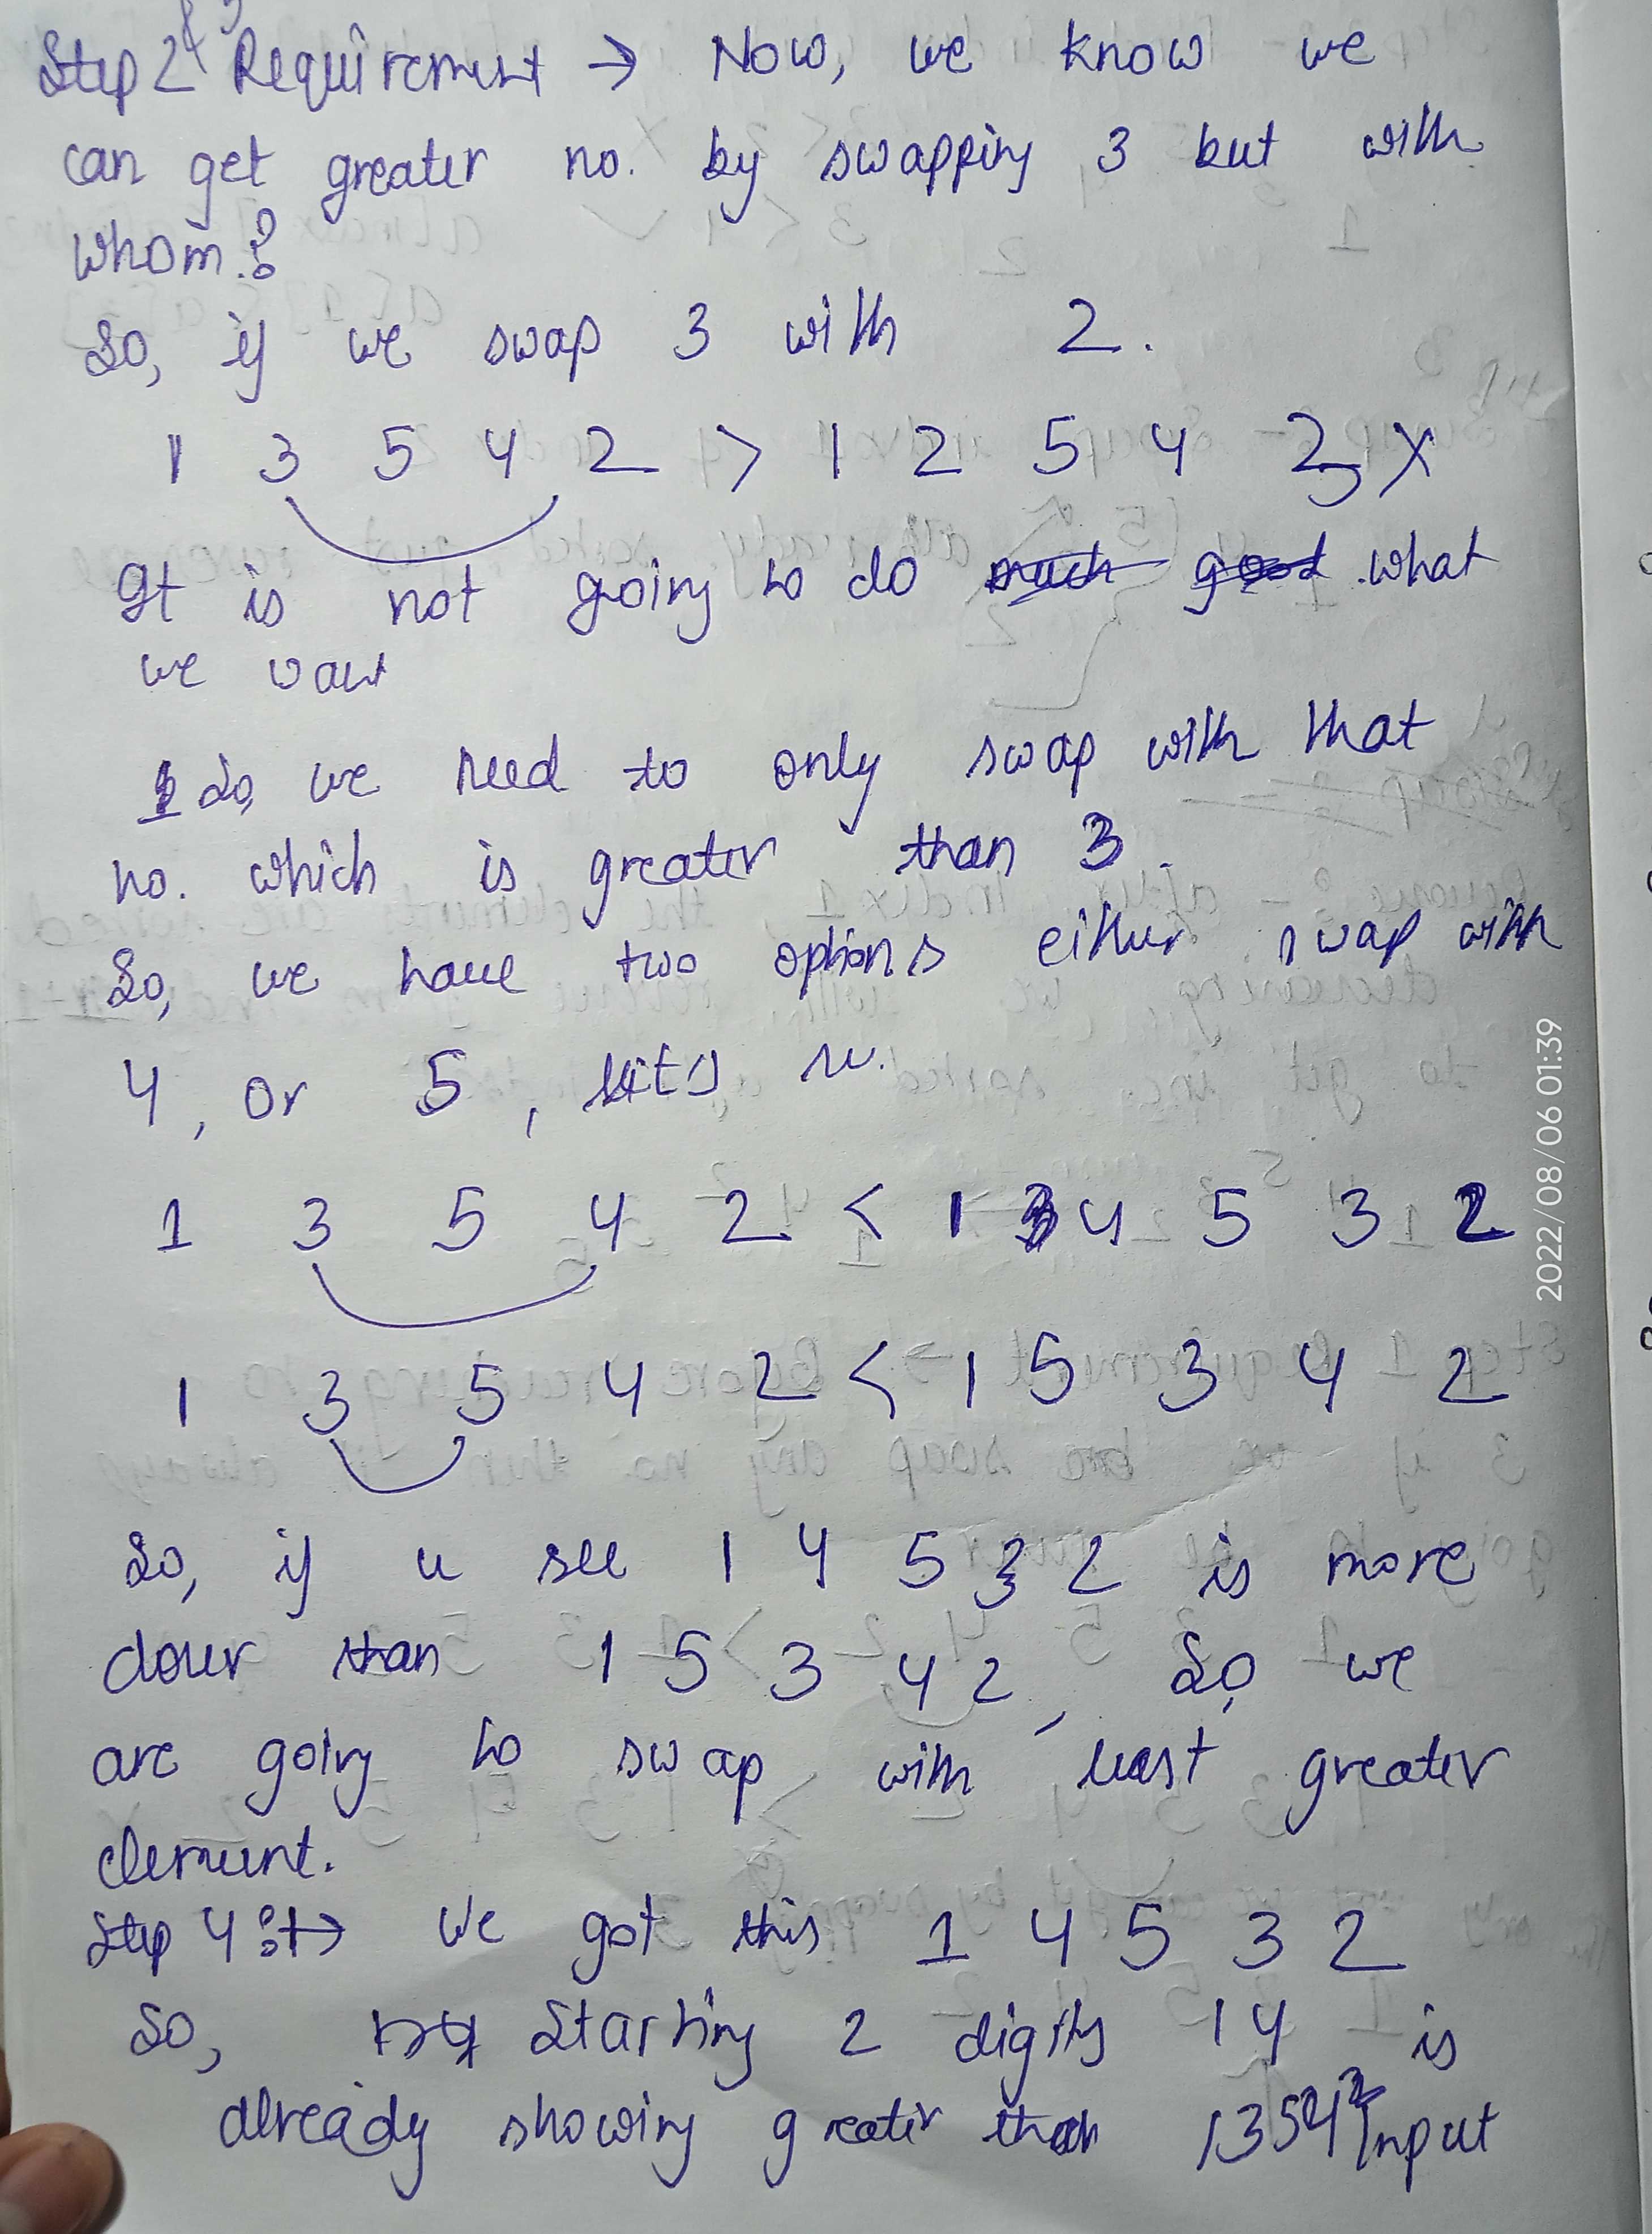 Step 2 & 3 Requirement → Now, we know we
can get greater no. by swapping 3 but with
whom?
So, if we swap 3 with 2.
1 3 5 4 2 > 1 2 5 4 3 X
It is not going to do much good what
we want
So, we need to only swap with that
no. which is greater than 3.
So, we have two options either swap with
4, or 5, let's see.
1 3 5 4 2 < 1 4 5 3 2
1 3 5 4 2 < 1 5 3 4 2
So, if u see 1 4 5 3 2 is more
closer than 1 5 3 4 2, So, we
are going to swap with least greater
element.
Step 4 :→ We got this 1 4 5 3 2
So, starting 2 digits 14 is
already showing greater than 13542 Input
2022/08/06 01:39